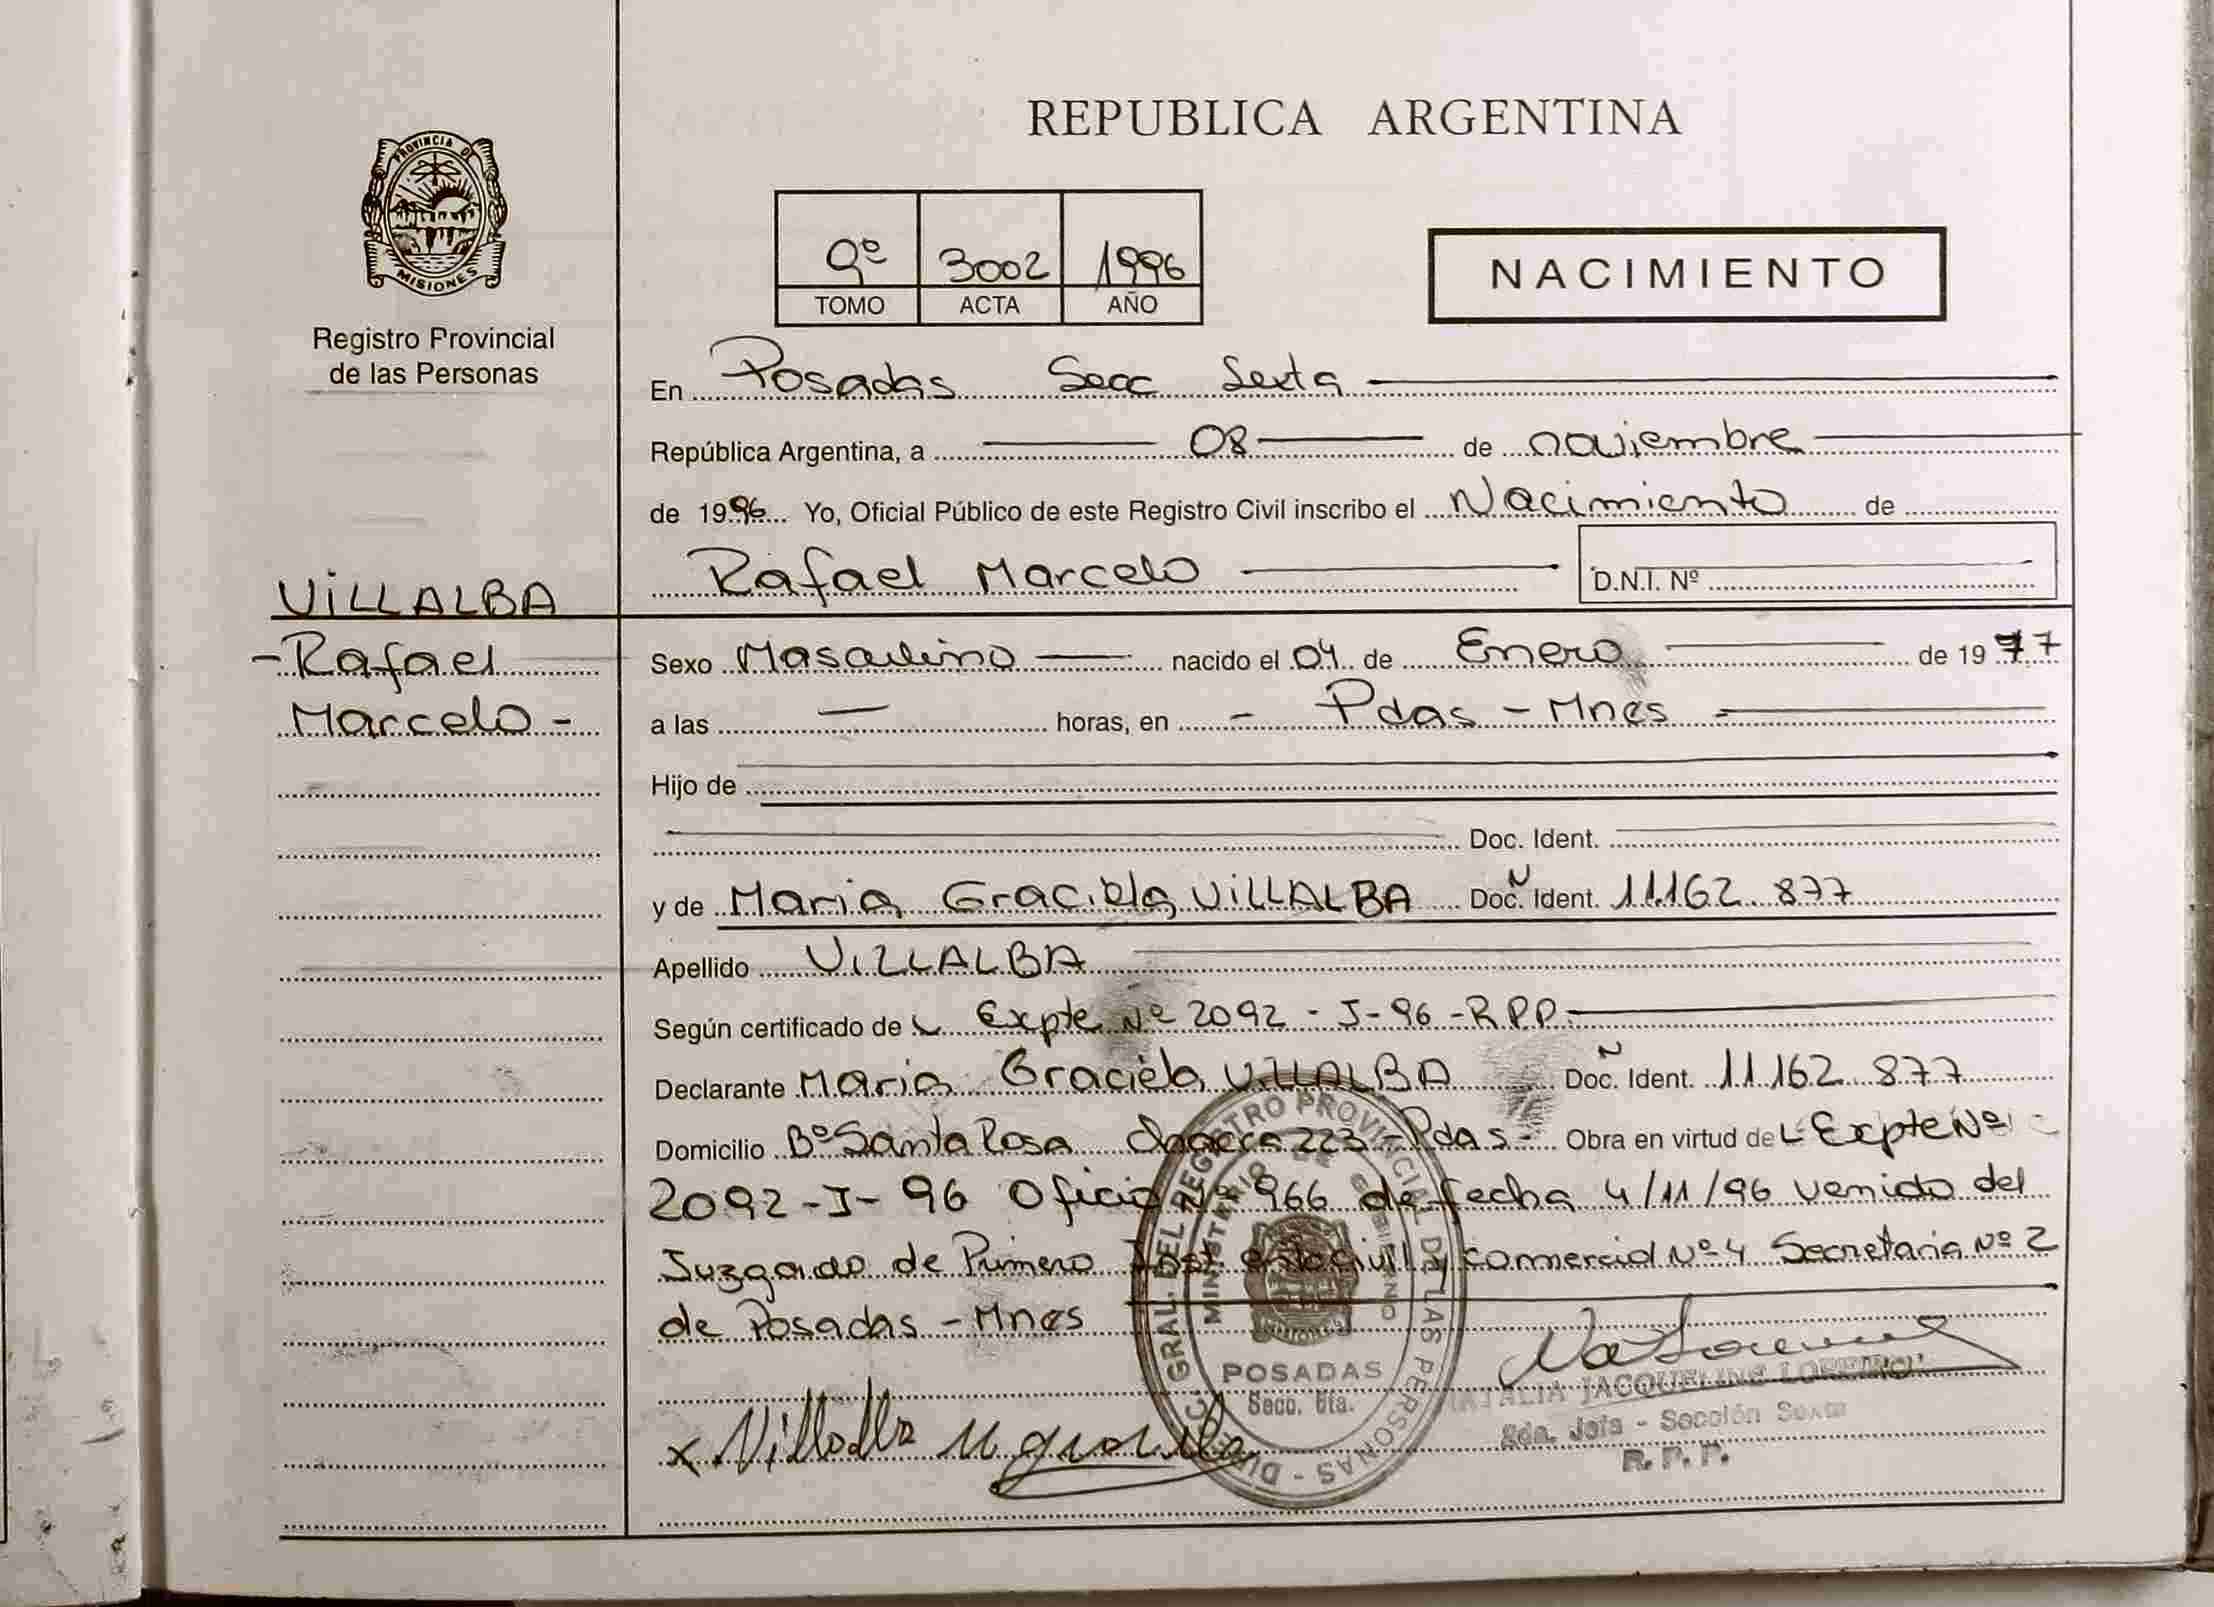 REPUBLICA ARGENTINA
PROVINCIA DE
MISIONES
Registro Provincial
de las Personas
9º 3002 1996
TOMO ACTA AÑO
NACIMIENTO
En Posadas Secc Sexta
República Argentina, a 08 de noviembre
de 1996 Yo, Oficial Público de este Registro Civil inscribo el Nacimiento de
Rafael Marcelo D.N.I. Nº
VILLALBA
-Rafael
Marcelo-
Sexo Masculino nacido el 04 de Enero de 1977
a las — horas, en - Pdas - Mnes -
Hijo de
Doc. Ident.
y de Maria Graciela VILLALBA Doc. Ident. 11.162.877
Apellido VILLALBA
Según certificado de Expte Nº 2092 - J - 96 - RPP.
Declarante Maria Graciela VILLALBA Doc. Ident. 11.162.877
Domicilio Bº Santa Rosa 223 - Pdas - Obra en virtud de Expte Nº
2092-J-96 Oficio Nº 966 de fecha 4/11/96 venido del
Juzgado de Primera Inst. en lo civil y comercial Nº 4 Secretaria Nº 2
de Posadas - Mnes
DIREC. GRAL. DEL REGISTRO PROVINCIAL DE LAS PERSONAS
MINISTERIO DE GOBIERNO
POSADAS
Secc. 6ta.
NATALIA JACQUELINE LOREIRO
2da. Jefa - Sección Sexta
R. P. P.
x Villalba M Graciela